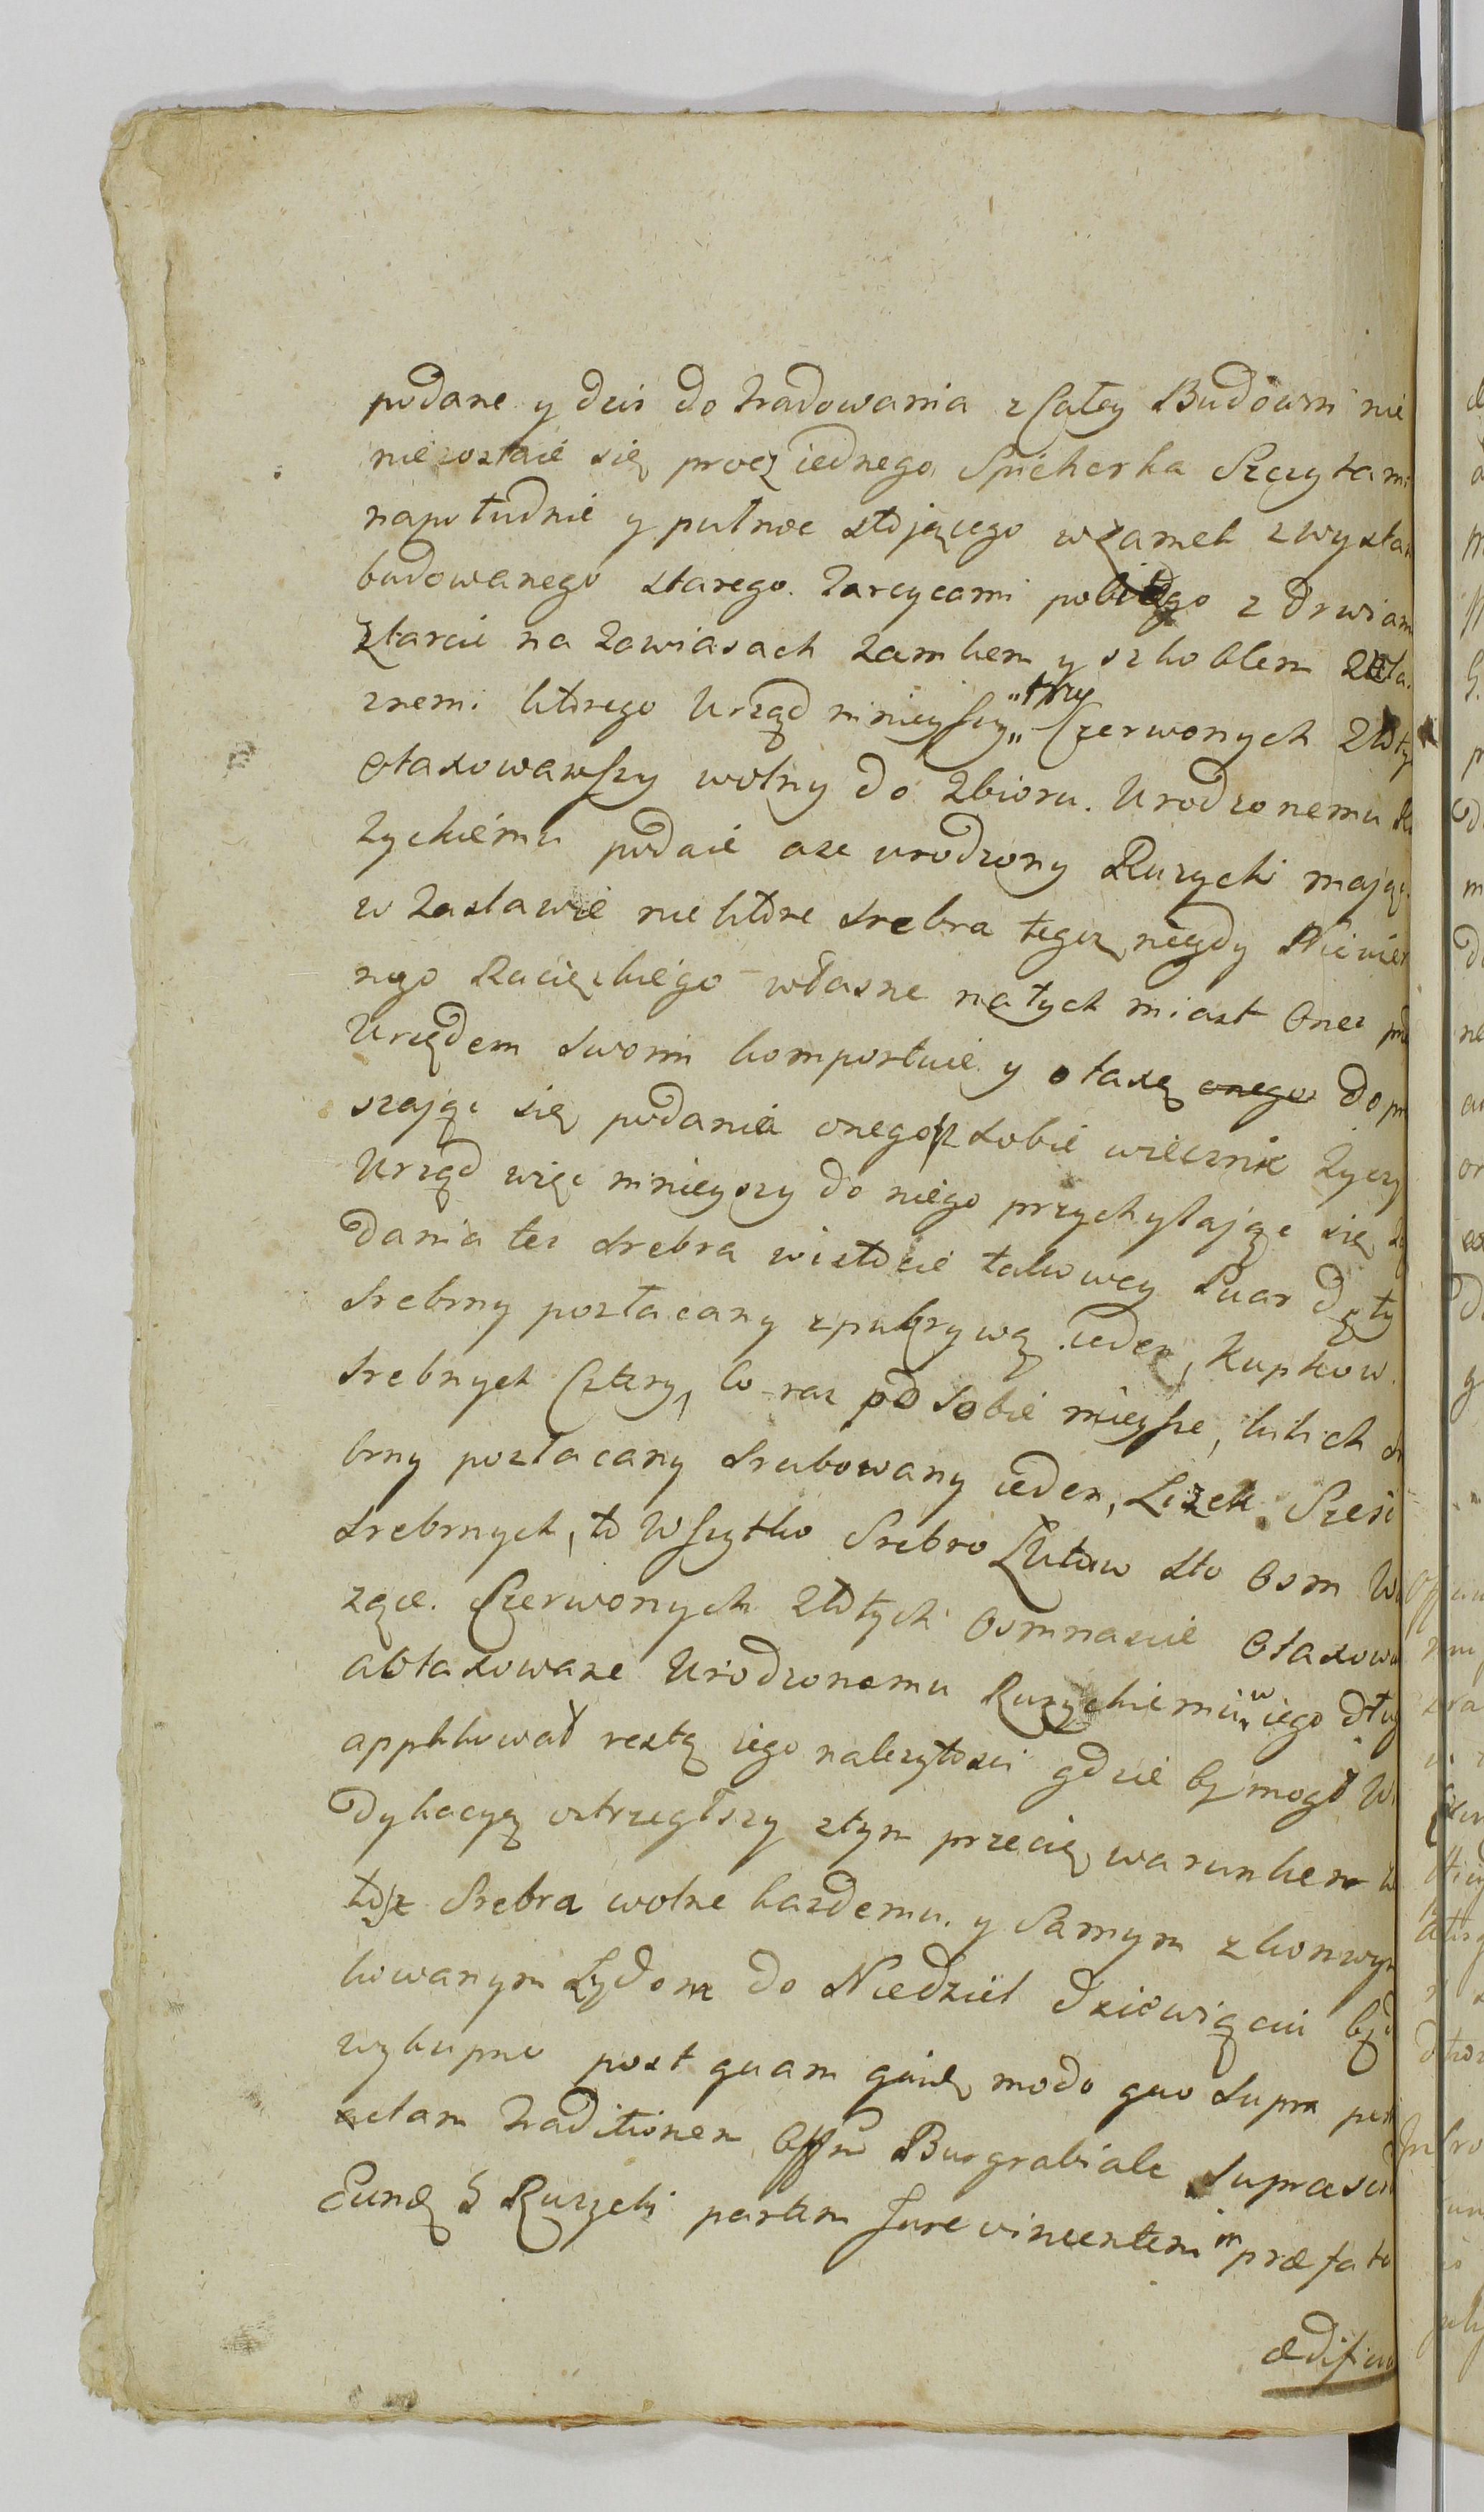 podane y dziś do tradowania z Całey Budowni nie
niezostaie się procz iednego Spicherka Szczytami
napołudnie y pułnoc stojącego wzamek zwystaw
budowanego starego. Tarcycami pobitego z drwiam
ztarcic na zawiasach zamkem y szkoblem Zela.
znemi ktorego Urząd ninieyszy „trzy„ Czerwonych Złoty
otaxowawszy wolny do Zbioru. Urodzonemu Ru
zyckiemu podaie aze urodzony Ruzycki mając
w Zastawie niektore srebra tegoz niegdy Niewier
nego Raciązkiego własne natych miast Onez prz
Urzędem swoim komportuie y otaxę onegoz dopra
szając się podania onegoz sobie wiecznie życzy
Urząd więc ninieyszy do niego przychylając się żą
dania tez srebra wistocie takowey Puar dęty
Srebrny pozłacany zpukrywą ieden, Kupkow
srebnych Cztery, co raz pod Sobie mieysze, kilich sre
brny pozłacany srubowany ieden, Lizek Szesc
srebrnych, to Wszytko Srebro Łutow sto osm Wa
zące. Czerwonych Złotych Osmnascie Otaxowa
aotaxowane Urodzonemu Ruzyckiemu w iego dług
applikował resztę iego nalezytosci gdzie by mogł Win
dykacyą ostrzegłszy ztym przecię warunkem
toz Srebra wolne kazdemu. y Samym zkonwyn
kowanym Żydom do Niedziel dziewięciu będ
wykupno post quam quidę modo quo supra per
actam Traditionem Offm Burgrabiale suprascr
Eundę G Ruzycki partem Jure vincentem in præfato
ædificio